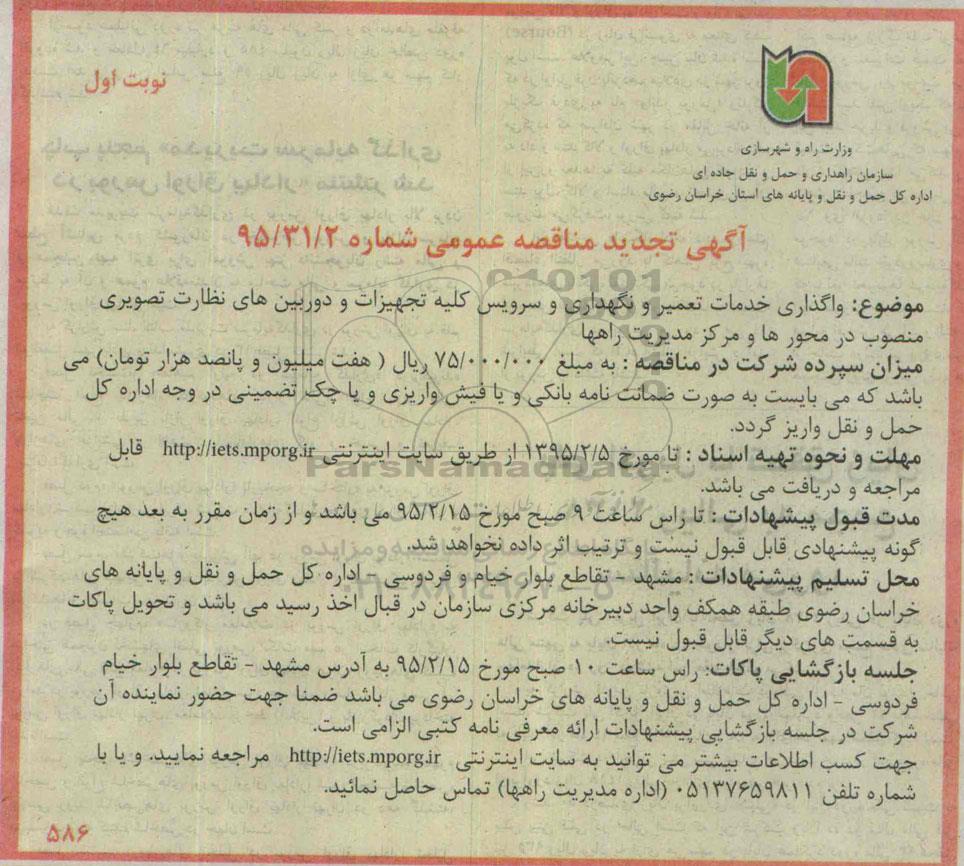 نوبت اول
وزارت راه و شهرسازی
سازمان راهداری و حمل و نقل جاده ای
اداره کل حمل و نقل و پایانه های استان خراسان رضوی
آگهی تجدید مناقصه عمومی شماره ۹۵/۳۱/۲
موضوع: واگذاری خدمات تعمیر و نگهداری و سرویس کلیه تجهیزات و دوربین های نظارت تصویری
منصوب در محور ها و مرکز مدیریت راهها
میزان سپرده شرکت در مناقصه : به مبلغ ۷۵/۰۰۰/۰۰۰ ریال ( هفت میلیون و پانصد هزار تومان) می
باشد که می بایست به صورت ضمانت نامه بانکی و یا فیش واریزی و یا چک تضمینی در وجه اداره کل
حمل و نقل واریز گردد.
مهلت و نحوه تهیه اسناد : تا مورخ ۱۳۹۵/۲/۵ از طریق سایت اینترنتی http://iets.mporg.ir قابل
مراجعه و دریافت می باشد.
مدت قبول پیشنهادات : تا راس ساعت ۹ صبح مورخ ۹۵/۲/۱۵ می باشد و از زمان مقرر به بعد هیچ
گونه پیشنهادی قابل قبول نیست و ترتیب اثر داده نخواهد شد.
محل تسلیم پیشنهادات : مشهد - تقاطع بلوار خیام و فردوسی - اداره کل حمل و نقل و پایانه های
خراسان رضوی طبقه همکف واحد دبیرخانه مرکزی سازمان در قبال اخذ رسید می باشد و تحویل پاکات
به قسمت های دیگر قابل قبول نیست.
جلسه بازگشایی پاکات: راس ساعت ۱۰ صبح مورخ ۹۵/۲/۱۵ به آدرس مشهد - تقاطع بلوار خیام
فردوسی - اداره کل حمل و نقل و پایانه های خراسان رضوی می باشد ضمنا جهت حضور نماینده آن
شرکت در جلسه بازگشایی پیشنهادات ارائه معرفی نامه کتبی الزامی است.
جهت کسب اطلاعات بیشتر می توانید به سایت اینترنتی http://iets.mporg.ir مراجعه نمایید. و یا با
شماره تلفن ۰۵۱۳۷۶۵۹۸۱۱ (اداره مدیریت راهها) تماس حاصل نمائید.
۵۸۶
ParsNamadData